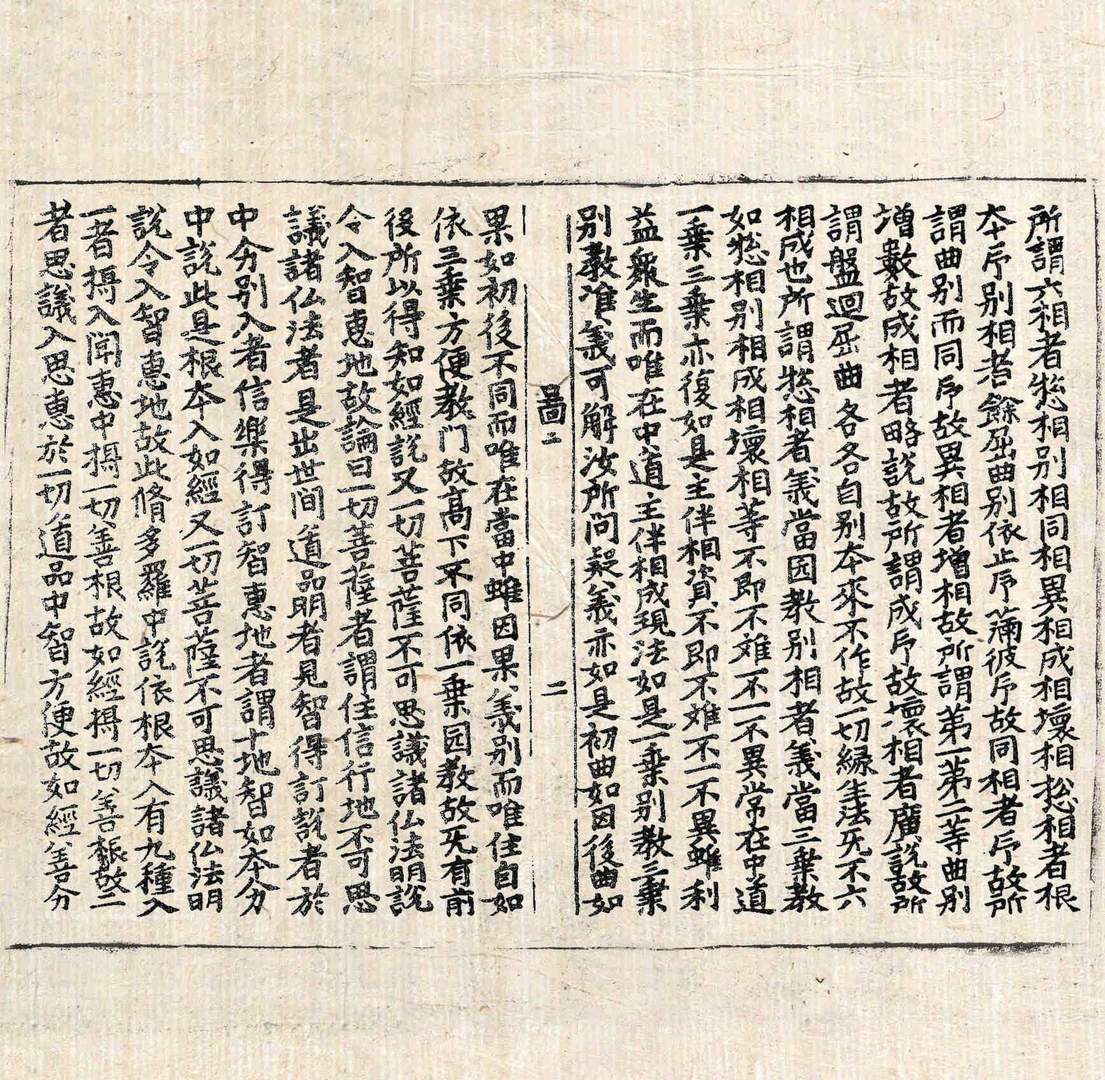 所謂六相者惣相別相同相異相成相壞相惣相者根
本印別相者餘屈曲別依止印滿彼印故同相者印故所
謂曲別而同印故異相者增相故所謂第一第二等曲別
增數故成相者略說故所謂成印故壞相者廣說故所
謂盤迴屈曲各各自別本來不作故一切緣生法无不六
相成也所謂惣相者義當圓教別相者義當三乗教
如惣相別相成相壞相等不即不離不一不異常在中道
一乗三乗亦復如是主伴相資不即不離不一不異雖利
益衆生而唯在中道主伴相成現法如是一乗別教三乗
別教准義可解汝所問疑義亦如是初曲如因後曲如
啚二 二
果如初後不同而唯在當中雖因果義別而唯住自如
依三乗方便教门故高下不同依一乗圓教故无有前
後所以得知如經說又一切菩薩不可思議諸仏法明說
令入智恵地故論曰一切菩薩者謂住信行地不可思
議諸仏法者是出世間道品明者見智得訂說者於
中分別入者信樂得訂智恵地者謂十地智如本分
中說此是根本入如經又一切菩薩不可思議諸仏法明
說令入智恵地故此脩多羅中說依根本入有九種入
一者攝入聞恵中攝一切善根故如經攝一切善根故二
者思議入思恵於一切道品中智方便故如經善分